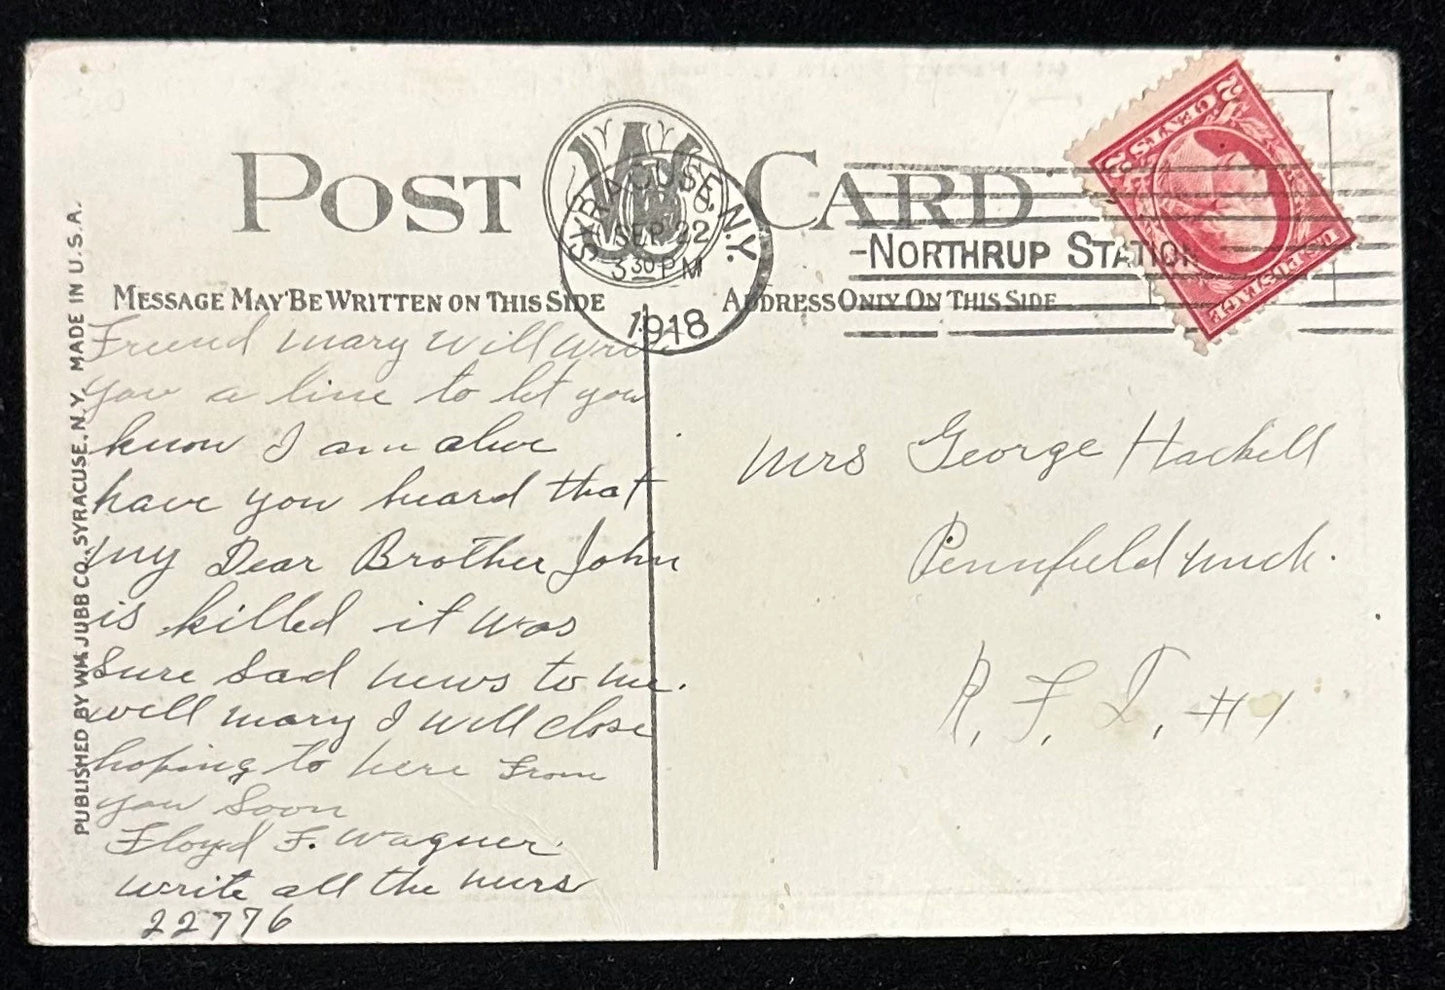 POST CARD
SYRACUSE, N.Y.
SEP 22
3 30 PM
1918
NORTHRUP STATION
2 CENTS 2
U.S. POSTAGE
MESSAGE MAY BE WRITTEN ON THIS SIDE
ADDRESS ONLY ON THIS SIDE
PUBLISHED BY WM. JUBB CO., SYRACUSE, N.Y. MADE IN U.S.A.
Friend mary will write
you a line to let you
know I am alive
have you heard that
my Dear Brother John
is killed it was
Sure Sad news to me.
well mary I will close
hoping to here from
you Soon
Floyd F. Wagner
write all the nurs
22776
Mrs George Hackell
Pennfield Mich.
R. F. D. #1